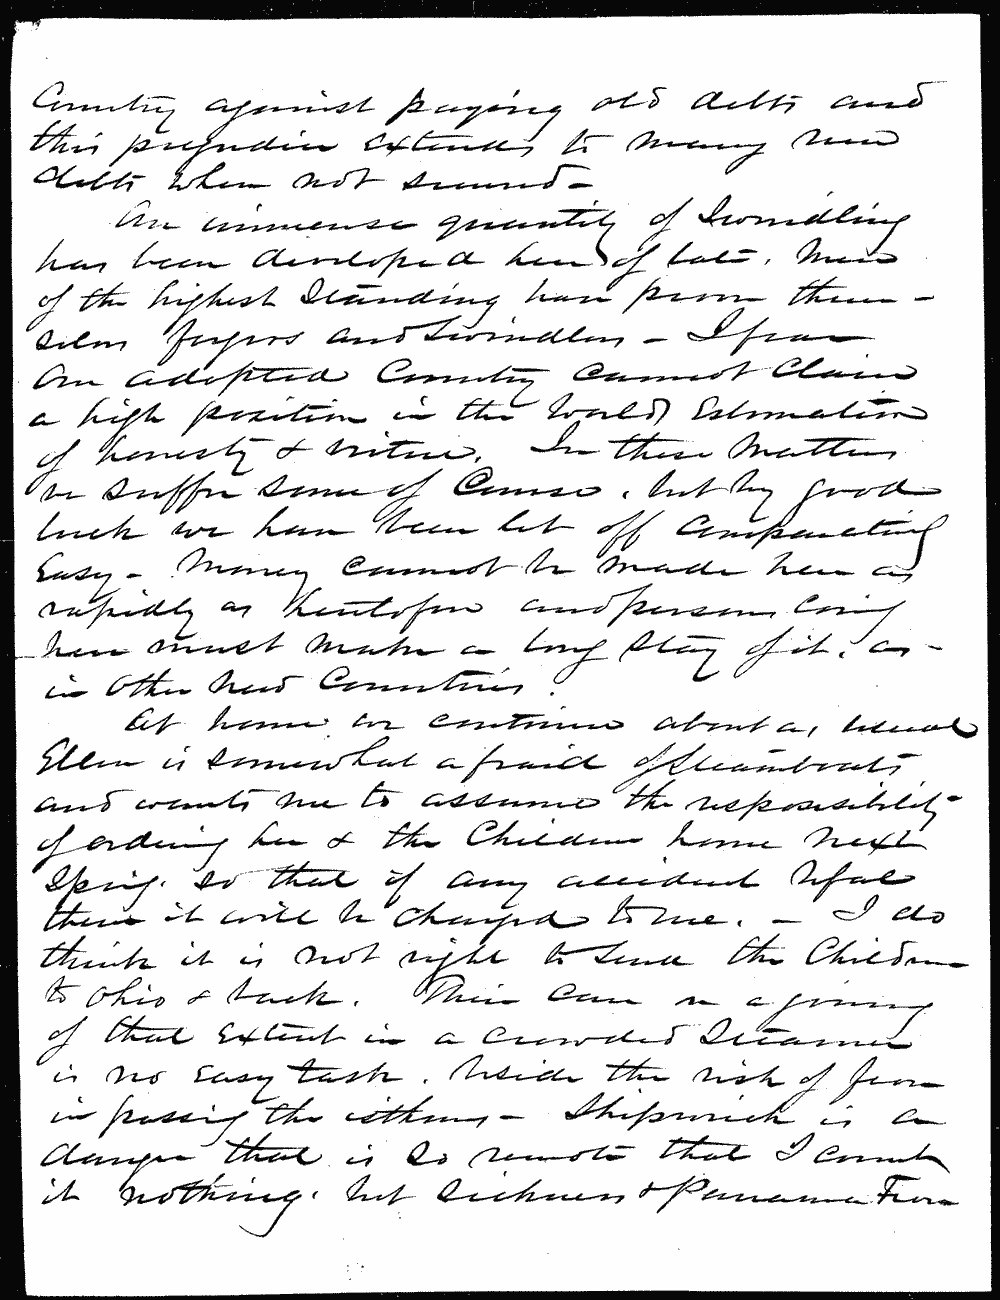 Country against paying old debts and
this prejudice extends to many new
debts when not secured -
An immense quantity of Swindling
has been developed here of late. Men
of the highest Standing have proven them -
selves forgers and Swindlers - I fear
our adopted Country cannot Claim
a high position in the Worlds Estimation
of honesty & virtue. In these Matters
we suffer some of Course, but by good
luck we have been let off comparatively
Easy - Money cannot be made here as
rapidly as heretofore and persons coming
here must make a long Stay of it, as -
in other New Countries.
At home we continue about as usual
Ellen is somewhat afraid of Steamboats
and wants me to assume the responsibility
of ordering her & the Children home next
Spring. so that if any accident befal
them it will be charged to me. - I do
think it is not right to send the Children
to Ohio & back. Their care on a journey
of that Extent in a crowded Steamer
is no Easy task. beside the risk of fever
in passing the isthmus - Shipwreck is a
danger that is so remote that I count
it nothing, but sickness & Panama Fever